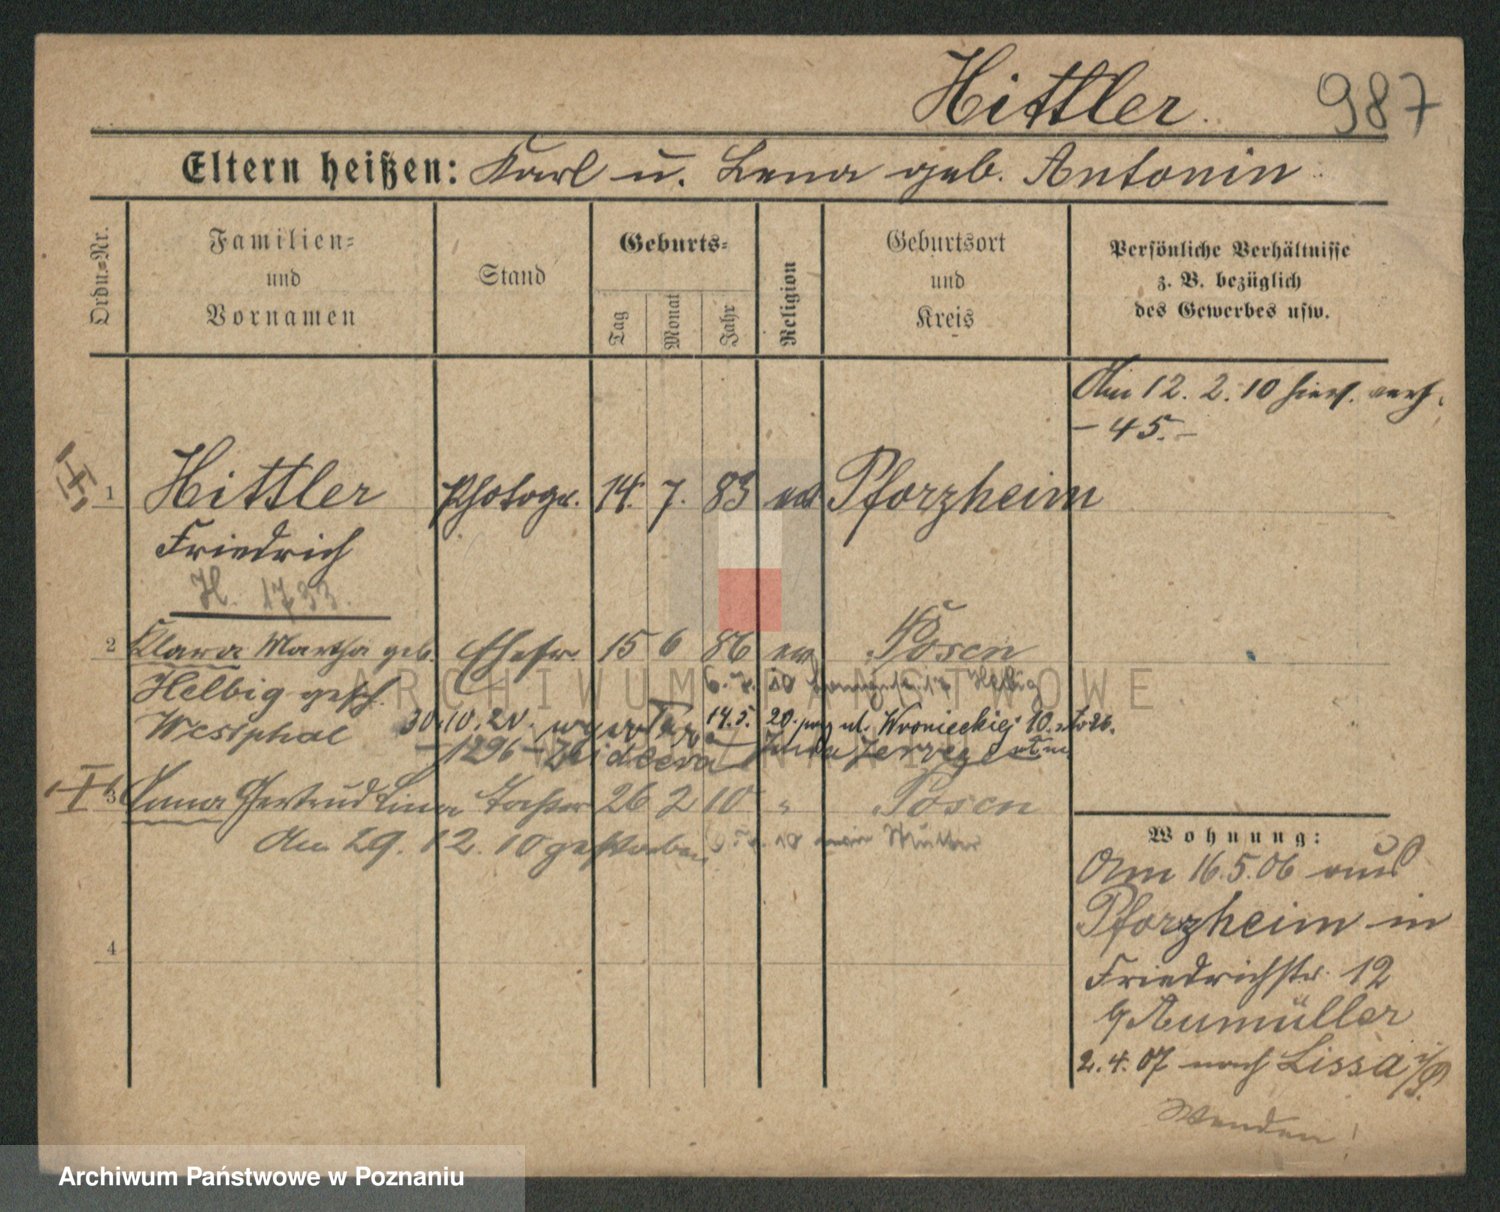 Hittler.
987
Eltern heißen: Karl u. Lena geb. Antonin
Ordn.-Nr.
Familien-
und
Vornamen
Stand
Geburts-
Tag
Monat
Jahr
Religion
Geburtsort
und
Kreis
Persönliche Verhältnisse
z. B. bezüglich
des Gewerbes usw.
Am 12. 2. 10 hies. verh.
- 45. -
1 Hittler Photogr. 14. 7. 83 ev Pforzheim
Friedrich
H. 1733.
2 Clara Martha geb. Ehefr. 15 6 86 ev Posen
Helbig gesch.
Westphal
30.10.20. 14.5. 20. ul. Wronieckiej 10.
- 1296 -
3 Anna Gertrud Lina Tochter 26 2 10 " Posen
Am 29. 12. 10 gestorben
Mutter
4
Wohnung:
Am 16.5.06 aus
Pforzheim in
Friedrichstr. 12
b/Aumüller
2. 4. 07 nach Lissa i/P.
Wenden!
ARCHIWUM PAŃSTWOWE
W POZNANIU
Archiwum Państwowe w Poznaniu